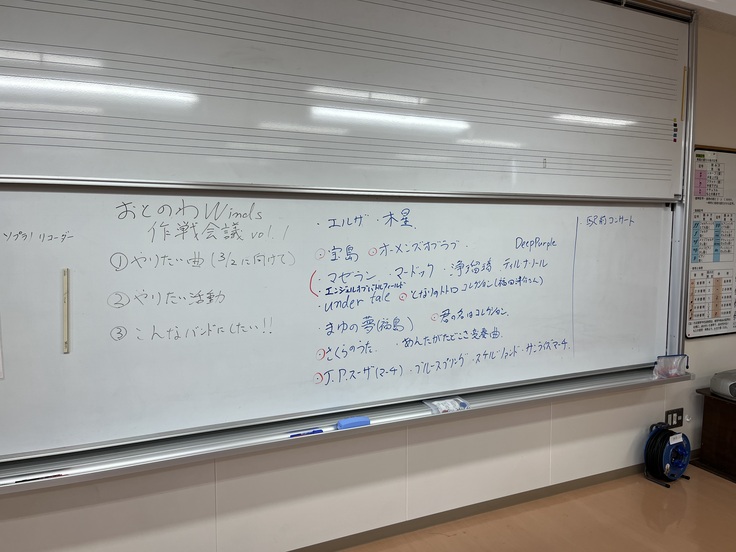 ソプラノ リコーダー
おとのわWinds
作戦会議 vol.1
①やりたい曲 (3/2に向けて)
②やりたい活動
③こんなバンドにしたい!!
・エルザ ・木星
・宝島 ・オーメンズオブラブ・ DeepPurple
・マゼラン ・マードック ・浄瑠璃 ・ティルナノール
・エンジェルオブバトルフィールド
・under tale ・となりのトトロ コレクション(福田洋介さん)
・まゆの夢(福島) ・君の名はコレクション
・さくらのうた ・あんたがたどこさ変奏曲
・J.P.スーザ(マーチ) ・ブルースプリング ・スケルツァンド ・サンライズマーチ
・駅前コンサート